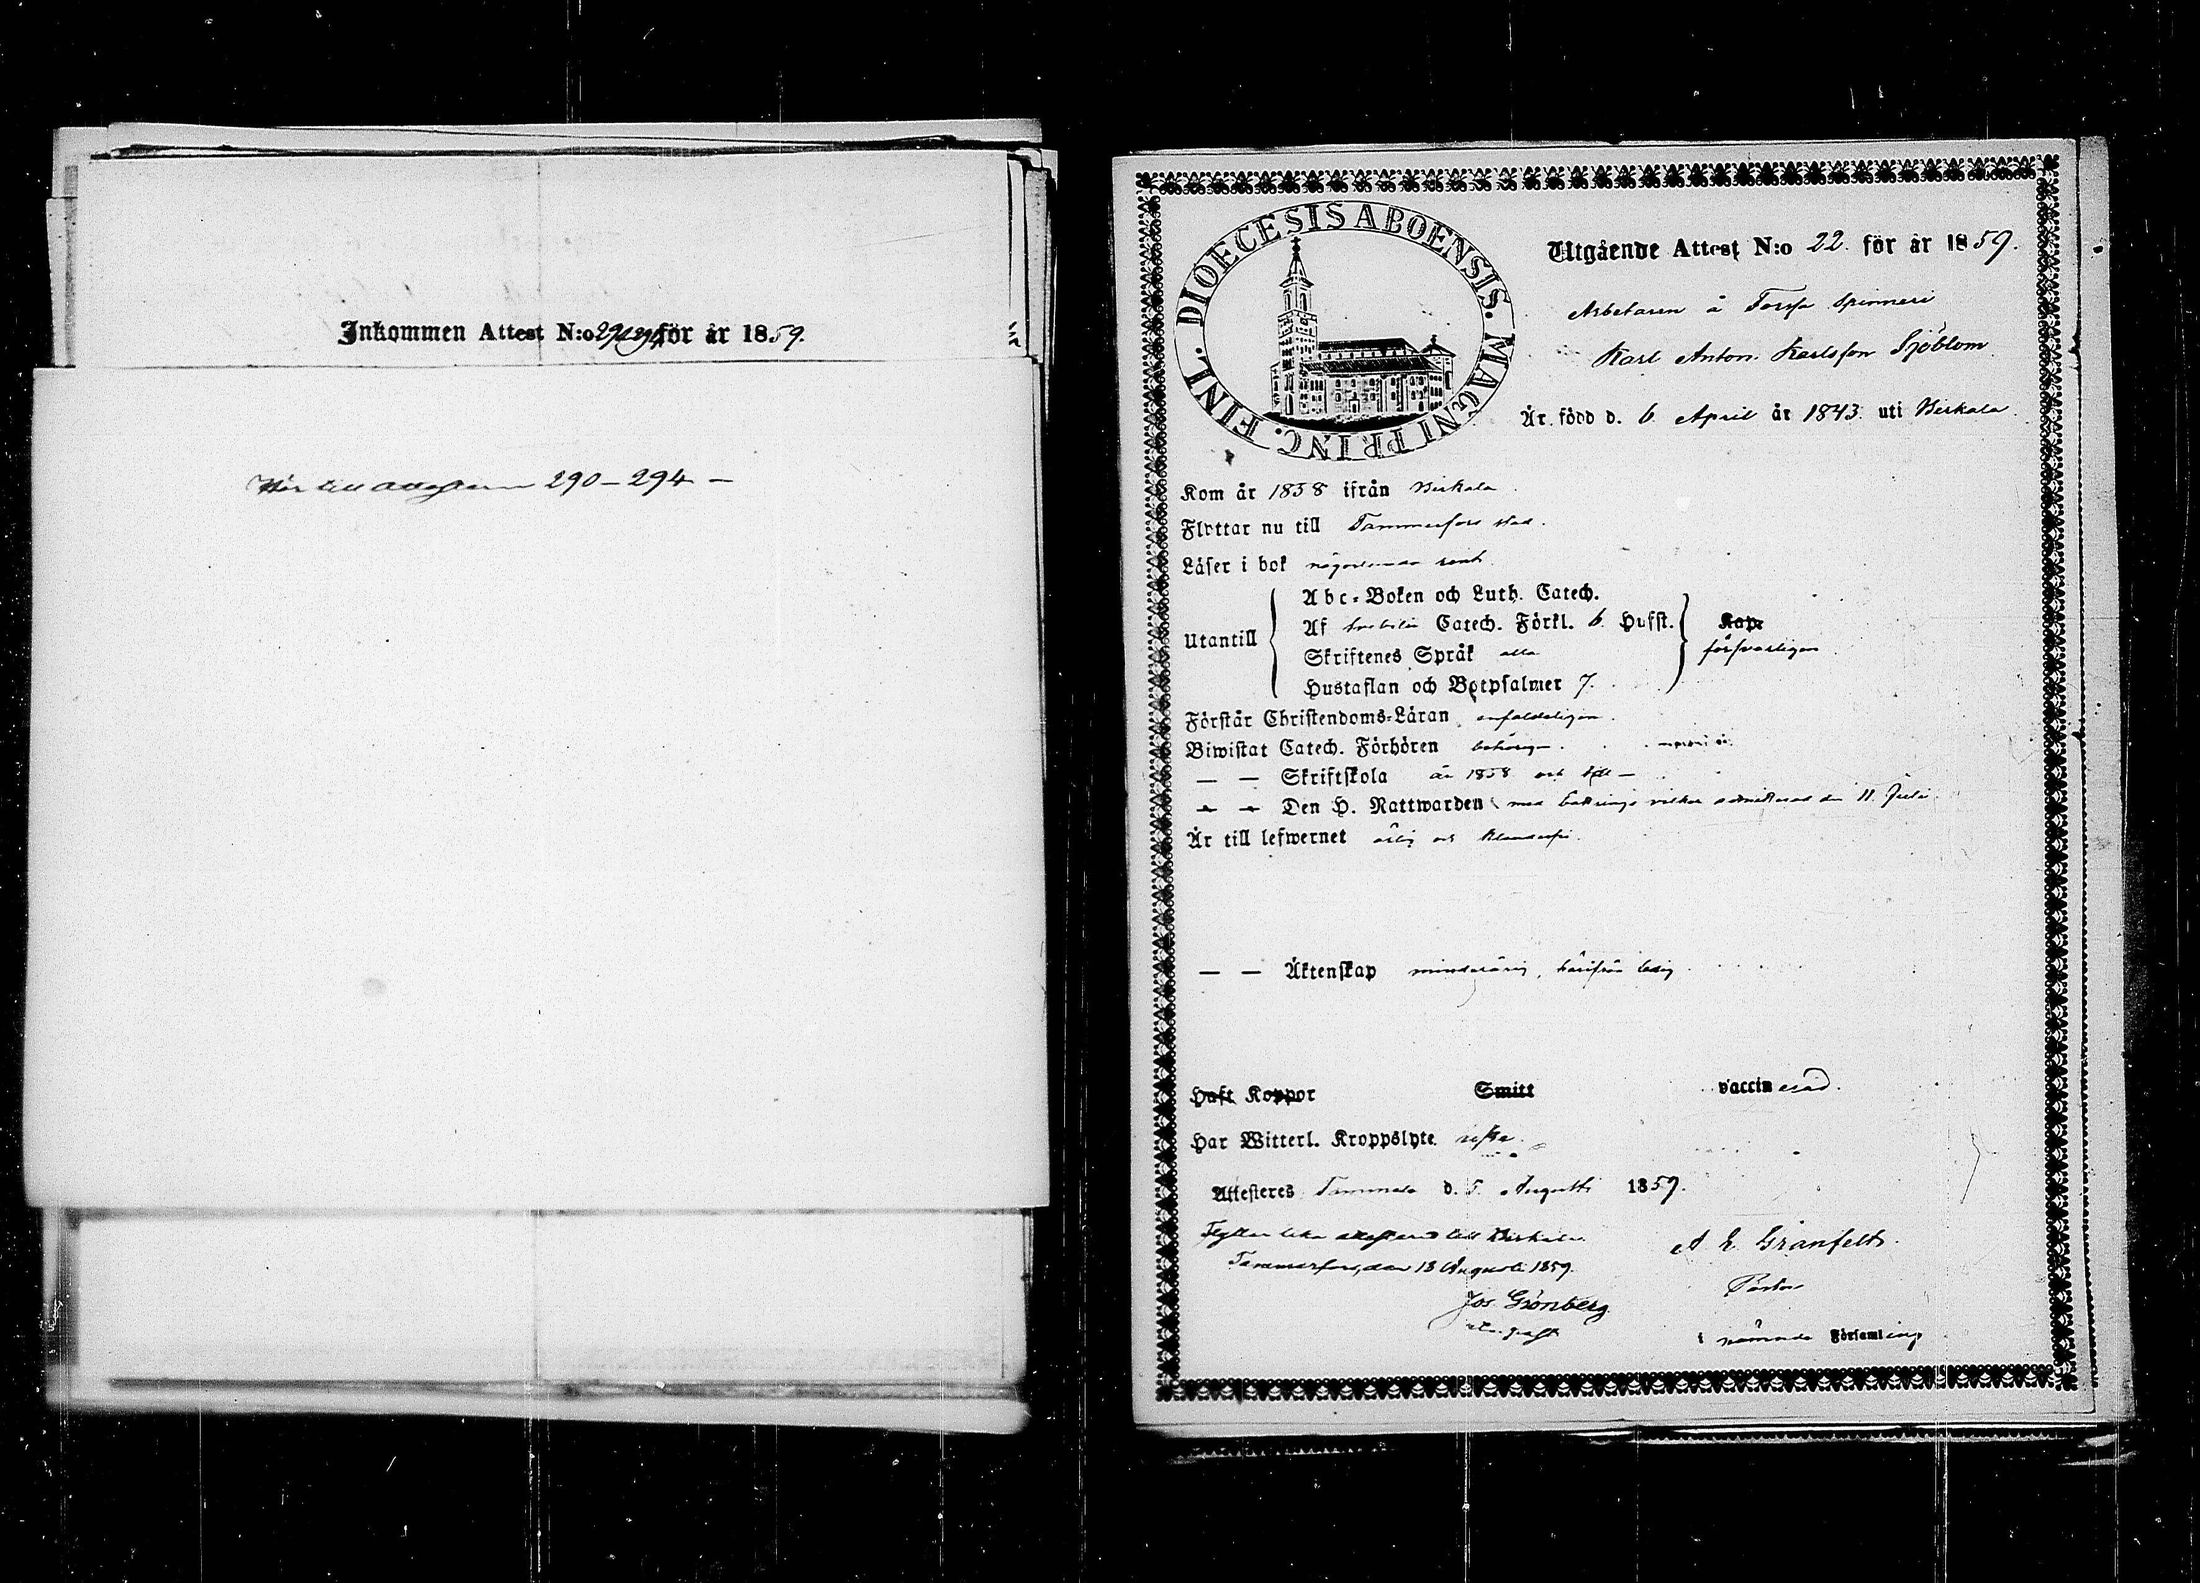 Inkommen Attest N:o 290-294 för år 1859.
Hör till attesterna 290-294 -
DIOECESIS ABOENSIS. MAGNI PRINC. FINL.
Utgående Attest N:o 22. för år 1859.
Arbetaren å Forssa spinneri
Karl Anton Karlsson Sjöblom
Är född d. 6 April år 1843 uti Birkala
Kom år 1858 ifrån Birkala.
Flyttar nu till Tammerfors stad.
Läser i bok någorlunda rent.
Utantill
Abc-Boken och Luth. Catech.
Af Catech. Förkl. 6. Hufst. Kap.
Skriftenes Språk alla försvarligen
Hustaflan och Botpsalmer 7.
Förstår Christendoms-Läran enfaldeligen.
Biwistat Catech. Förhören behörigen.
— — Skriftskola år 1858 och
— — Den H. Nattwarden med admitterad den 11 Juli
Är till lefwernet ärlig och klanderfri.
— — Äktenskap minderårig, härifrån ledig.
Haft Koppor Smitt vaccinerad.
Har Witterl. Kroppslyte
Attesteres Tammela d. 5. Augusti 1859.
Flyttar lika attesterad till Birkala.
Tammerfors, den 13 Augusti 1859.
Jos. Grönberg
A. E. Granfelt.
Pastor
i nämnde Församling